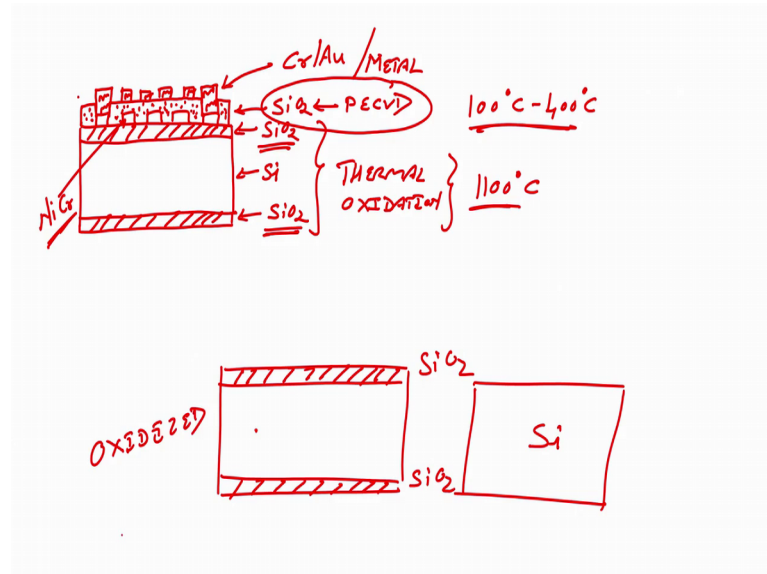 Cr/Au / METAL
SiO2 ← PECVD
100°C - 400°C
SiO2
Si
THERMAL
OXIDATION
1100°C
NiCr
SiO2
SiO2
OXIDIZED
Si
SiO2